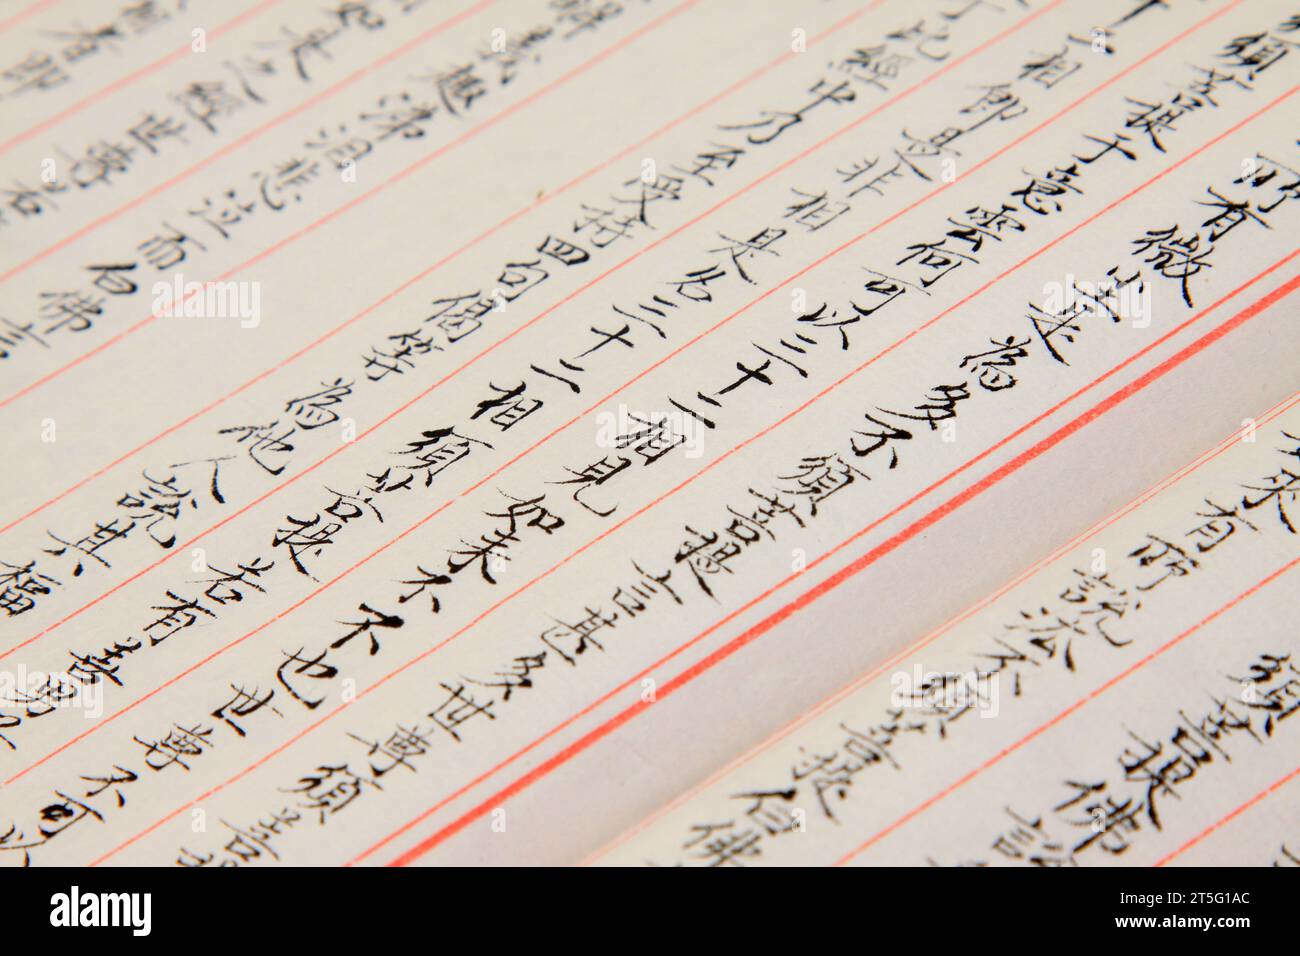 須菩提佛說
來有所說法不須菩提白佛
所有微塵是為多不須菩提言甚多世尊須菩
須菩提于意雲何可以三十二相見如來不不也世尊不可以
十二相即是非相是名三十二相須菩提若有善男
于此經中乃至受持四句偈等為他人說其福
解義趣涕泪悲泣而白佛言
如是之經世尊若
者即
alamy
Image ID: 2T5G1AC
www.alamy.com